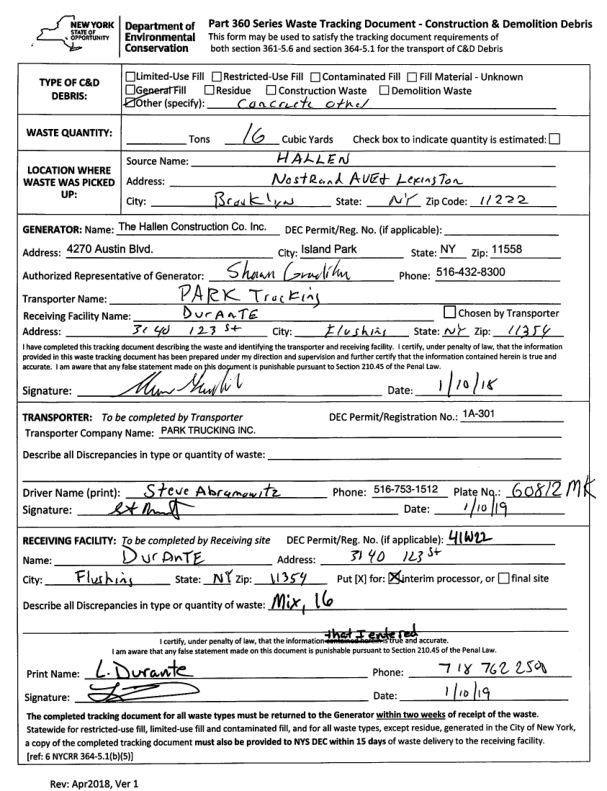 NEW YORK STATE OF OPPORTUNITY
Department of Environmental Conservation
Part 360 Series Waste Tracking Document - Construction & Demolition Debris
This form may be used to satisfy the tracking document requirements of
both section 361-5.6 and section 364-5.1 for the transport of C&D Debris
TYPE OF C&D DEBRIS:
Limited-Use Fill Restricted-Use Fill Contaminated Fill Fill Material - Unknown
General Fill Residue Construction Waste Demolition Waste
Other (specify): Concrete other
WASTE QUANTITY: Tons 16 Cubic Yards Check box to indicate quantity is estimated:
LOCATION WHERE WASTE WAS PICKED UP:
Source Name: HALLEN
Address: Nostrand AVE+ Lexington
City: Brooklyn State: NY Zip Code: 11222
GENERATOR: Name: The Hallen Construction Co. Inc. DEC Permit/Reg. No. (if applicable):
Address: 4270 Austin Blvd. City: Island Park State: NY Zip: 11558
Authorized Representative of Generator: Shawn Phone: 516-432-8300
Transporter Name: PARK Trucking
Receiving Facility Name: DurANTE Chosen by Transporter
Address: 3140 123 St City: Flushing State: NY Zip: 11354
I have completed this tracking document describing the waste and identifying the transporter and receiving facility. I certify, under penalty of law, that the information
provided in this waste tracking document has been prepared under my direction and supervision and further certify that the information contained herein is true and
accurate. I am aware that any false statement made on this document is punishable pursuant to Section 210.45 of the Penal Law.
Signature: Date: 1/10/18
TRANSPORTER: To be completed by Transporter DEC Permit/Registration No.: 1A-301
Transporter Company Name: PARK TRUCKING INC.
Describe all Discrepancies in type or quantity of waste:
Driver Name (print): Steve Abramowitz Phone: 516-753-1512 Plate No.: 60812MK
Signature: Date: 1/10/19
RECEIVING FACILITY: To be completed by Receiving site DEC Permit/Reg. No. (if applicable): 41W22
Name: DurANTE Address: 3140 123 St
City: Flushing State: NY Zip: 11354 Put [X] for: X interim processor, or final site
Describe all Discrepancies in type or quantity of waste: Mix, 16
that I entered
I certify, under penalty of law, that the information contained herein is true and accurate.
I am aware that any false statement made on this document is punishable pursuant to Section 210.45 of the Penal Law.
Print Name: L. Durante Phone: 718 762 2500
Signature: Date: 1/10/19
The completed tracking document for all waste types must be returned to the Generator within two weeks of receipt of the waste.
Statewide for restricted-use fill, limited-use fill and contaminated fill, and for all waste types, except residue, generated in the City of New York,
a copy of the completed tracking document must also be provided to NYS DEC within 15 days of waste delivery to the receiving facility.
[ref: 6 NYCRR 364-5.1(b)(5)]
Rev: Apr2018, Ver 1